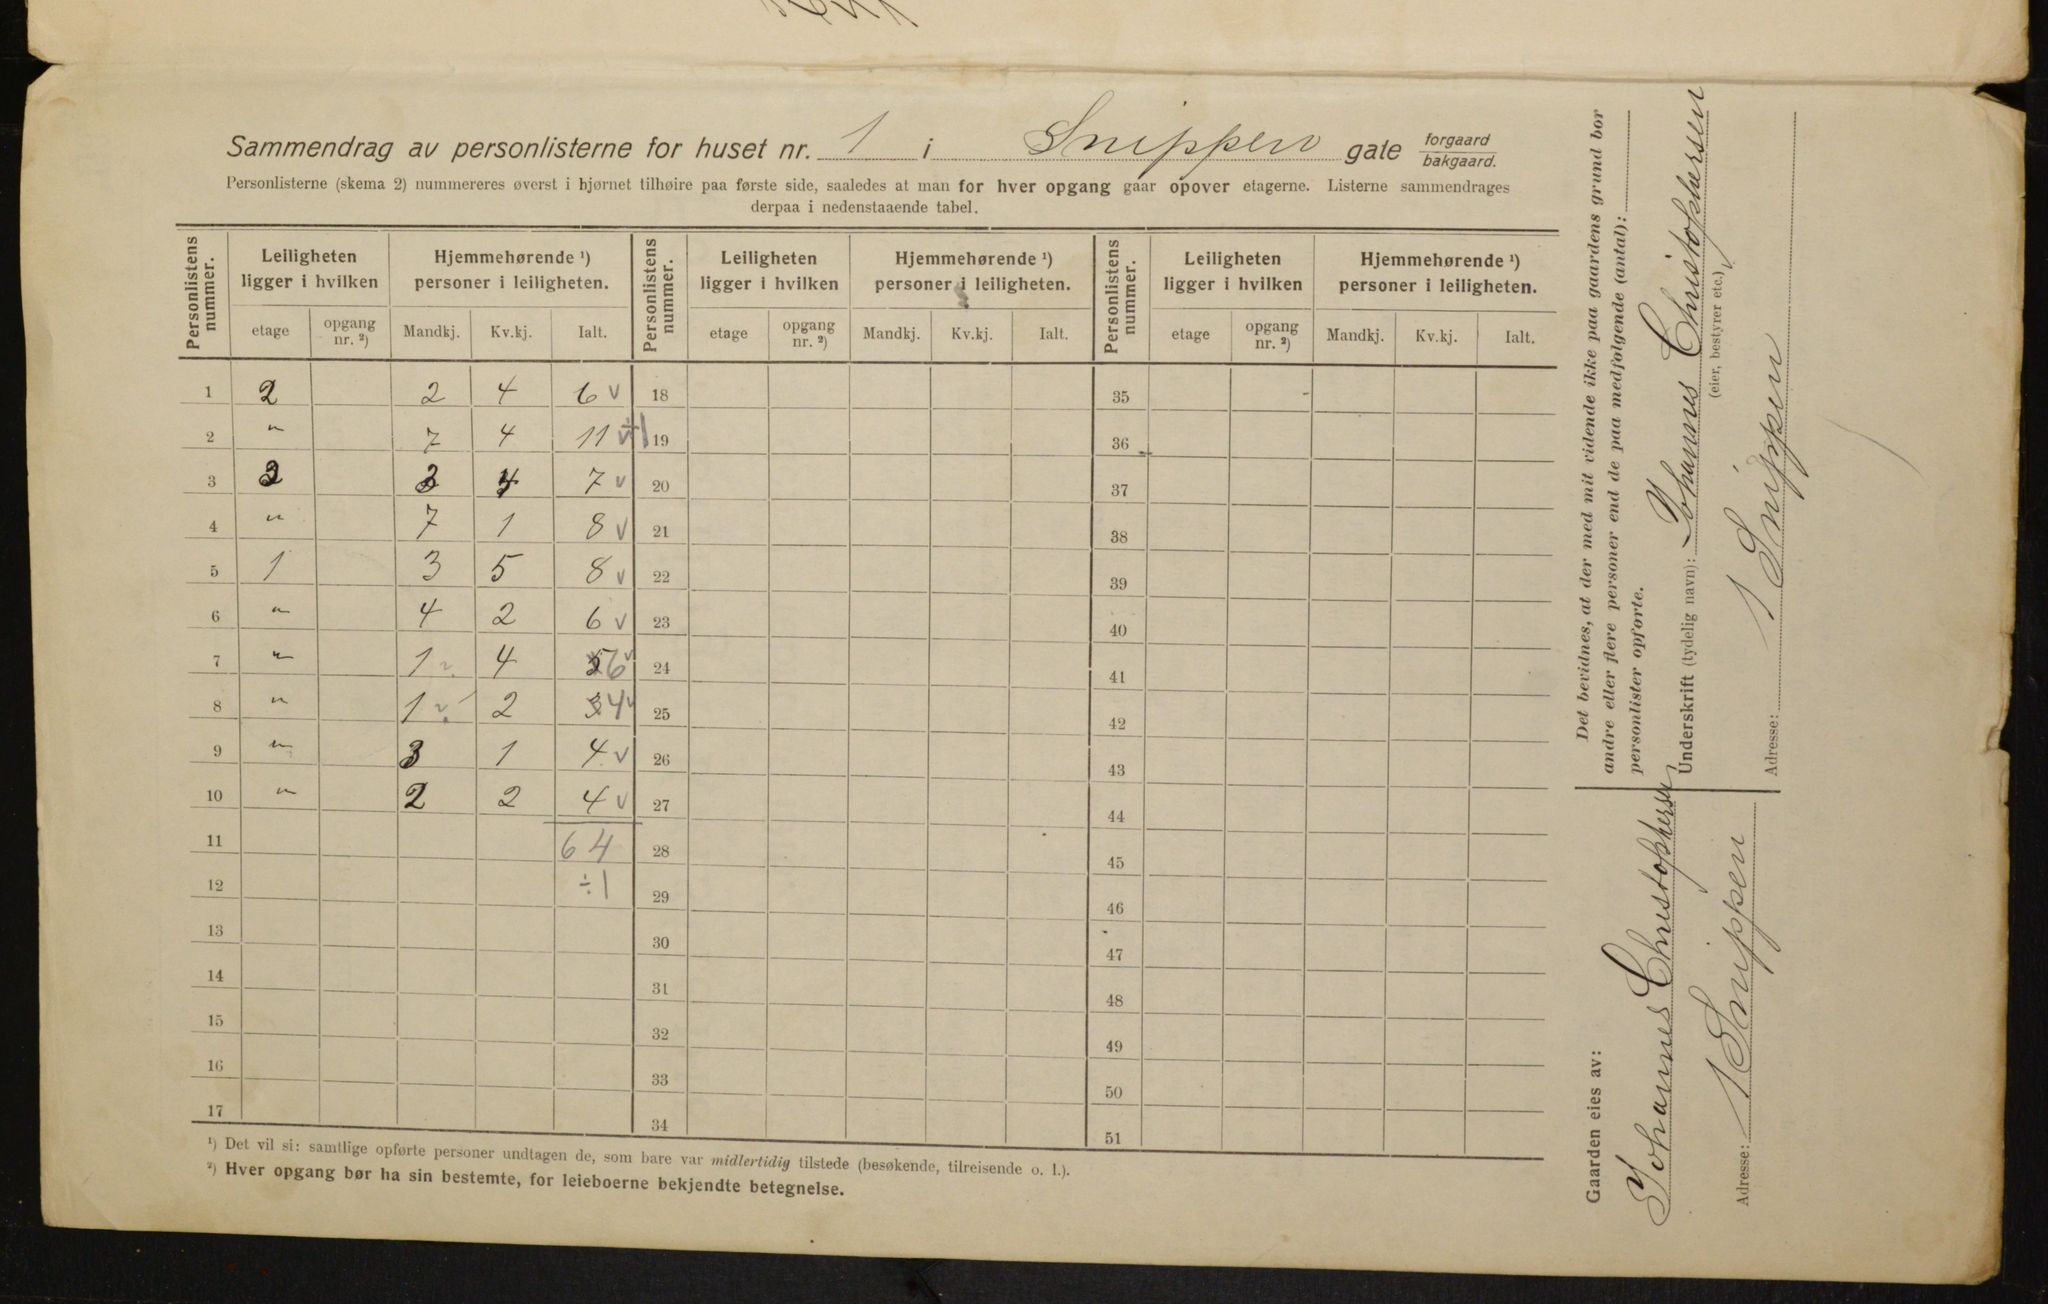 Sammendrag av personlisterne for huset nr. 1 i Snippen gate forgaard bakgaard.
Personlisterne (skema 2) nummereres øverst i hjørnet tilhøire paa første side, saaledes at man for hver opgang gaar opover etagerne. Listerne sammendrages
derpaa i nedenstaaende tabel.
Personlistens nummer. Leiligheten ligger i hvilken Hjemmehørende ¹) personer i leiligheten. Personlistens nummer. Leiligheten ligger i hvilken Hjemmehørende ¹) personer i leiligheten. Personlistens nummer. Leiligheten ligger i hvilken Hjemmehørende ¹) personer i leiligheten.
etage opgang nr. ²) Mandkj. Kv.kj. Ialt. etage opgang nr. ²) Mandkj. Kv.kj. Ialt. etage opgang nr. ²) Mandkj. Kv.kj. Ialt.
1 2 2 4 6 v 18 35
2 " 7 4 11 v ÷1 19 36
3 2 3 4 7 v 20 37
4 " 7 1 8 v 21 38
5 1 3 5 8 v 22 39
6 " 4 2 6 v 23 40
7 " 1 2 4 5 6 v 24 41
8 " 1 2 2 3 4 v 25 42
9 " 3 1 4 v 26 43
10 " 2 2 4 v 27 44
11 64 28 45
12 ÷1 29 46
13 30 47
14 31 48
15 32 49
16 33 50
17 34 51
¹) Det vil si: samtlige opførte personer undtagen de, som bare var midlertidig tilstede (besøkende, tilreisende o. l.).
²) Hver opgang bør ha sin bestemte, for leieboerne bekjendte betegnelse.
Det bevidnes, at der med mit vidende ikke paa gaardens grund bor
andre eller flere personer end de paa medfølgende (antal):
personlister opførte.
Underskrift (tydelig navn): Johannes Christophersen
(eier, bestyrer etc.)
Adresse: 1 Snippen
Gaarden eies av:
Johannes Christophersen
Adresse: 1 Snippen